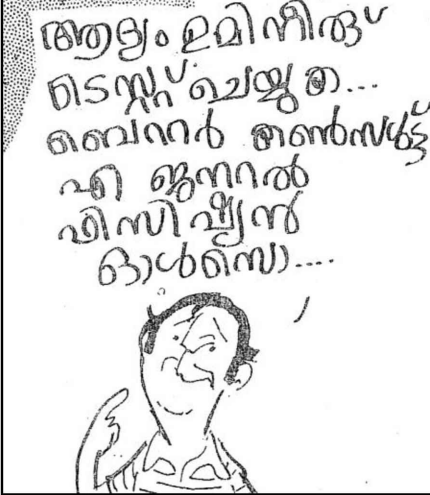 ആദ്യം ഉമിനീരു്
ടെസ്റ്റു് ചെയ്യുക...
ബെറ്റർ കൺസൾട്ട്
എ ജനറൽ
ഫിസിഷ്യൻ
ഓൾസൊ....